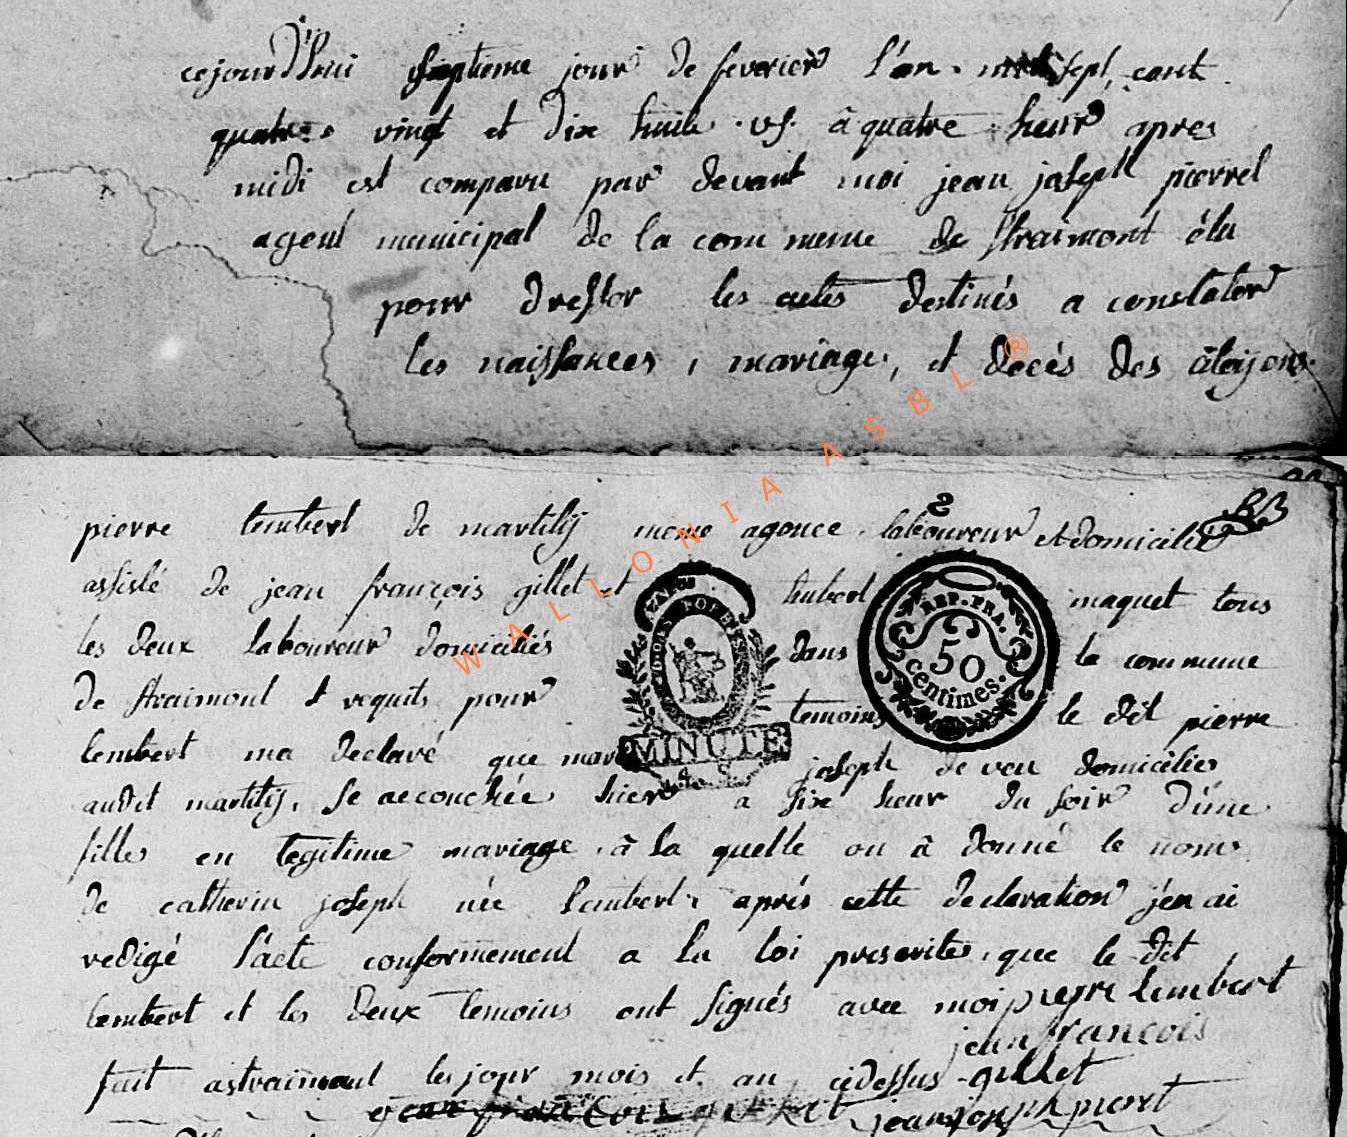 cejourd'hui septieme jour de feverier l'an sept cent
quatre vingt et dix huit v.s. à quatre heur apres
midi est comparu par devant moi jean joseph pierrel
agent municipal de la commune de straimont élu
pour dresser les actes destinés a constater
les naissances, mariage, et décés des citoijens
pierre lembert de martilij meme agence laboureur et domicilié
assisté de jean françois gillet et hubert maquet tous
les deux laboureur domiciliés dans la commune
de straimont et requits pour temoins le dit pierre
lembert ma declaré que joseph de veu domicilie
audit martilij, se accouchée hier a six heur du soir d'une
filles en legitime mariage, à la quelle on à donné le nom
de catherin joseph née lembert, aprés cette declaration j'en ai
redigé l'acte conformement a la loi prescrite, que le dit
lembert et les deux temoins ont signés avec moi pierre lembert
jean francois
fait a straimont les jour mois et an cidessus gillet
jean joseph
REP. FRA.
50
centimes.
MINUTE
WALLONIA ASBL ®